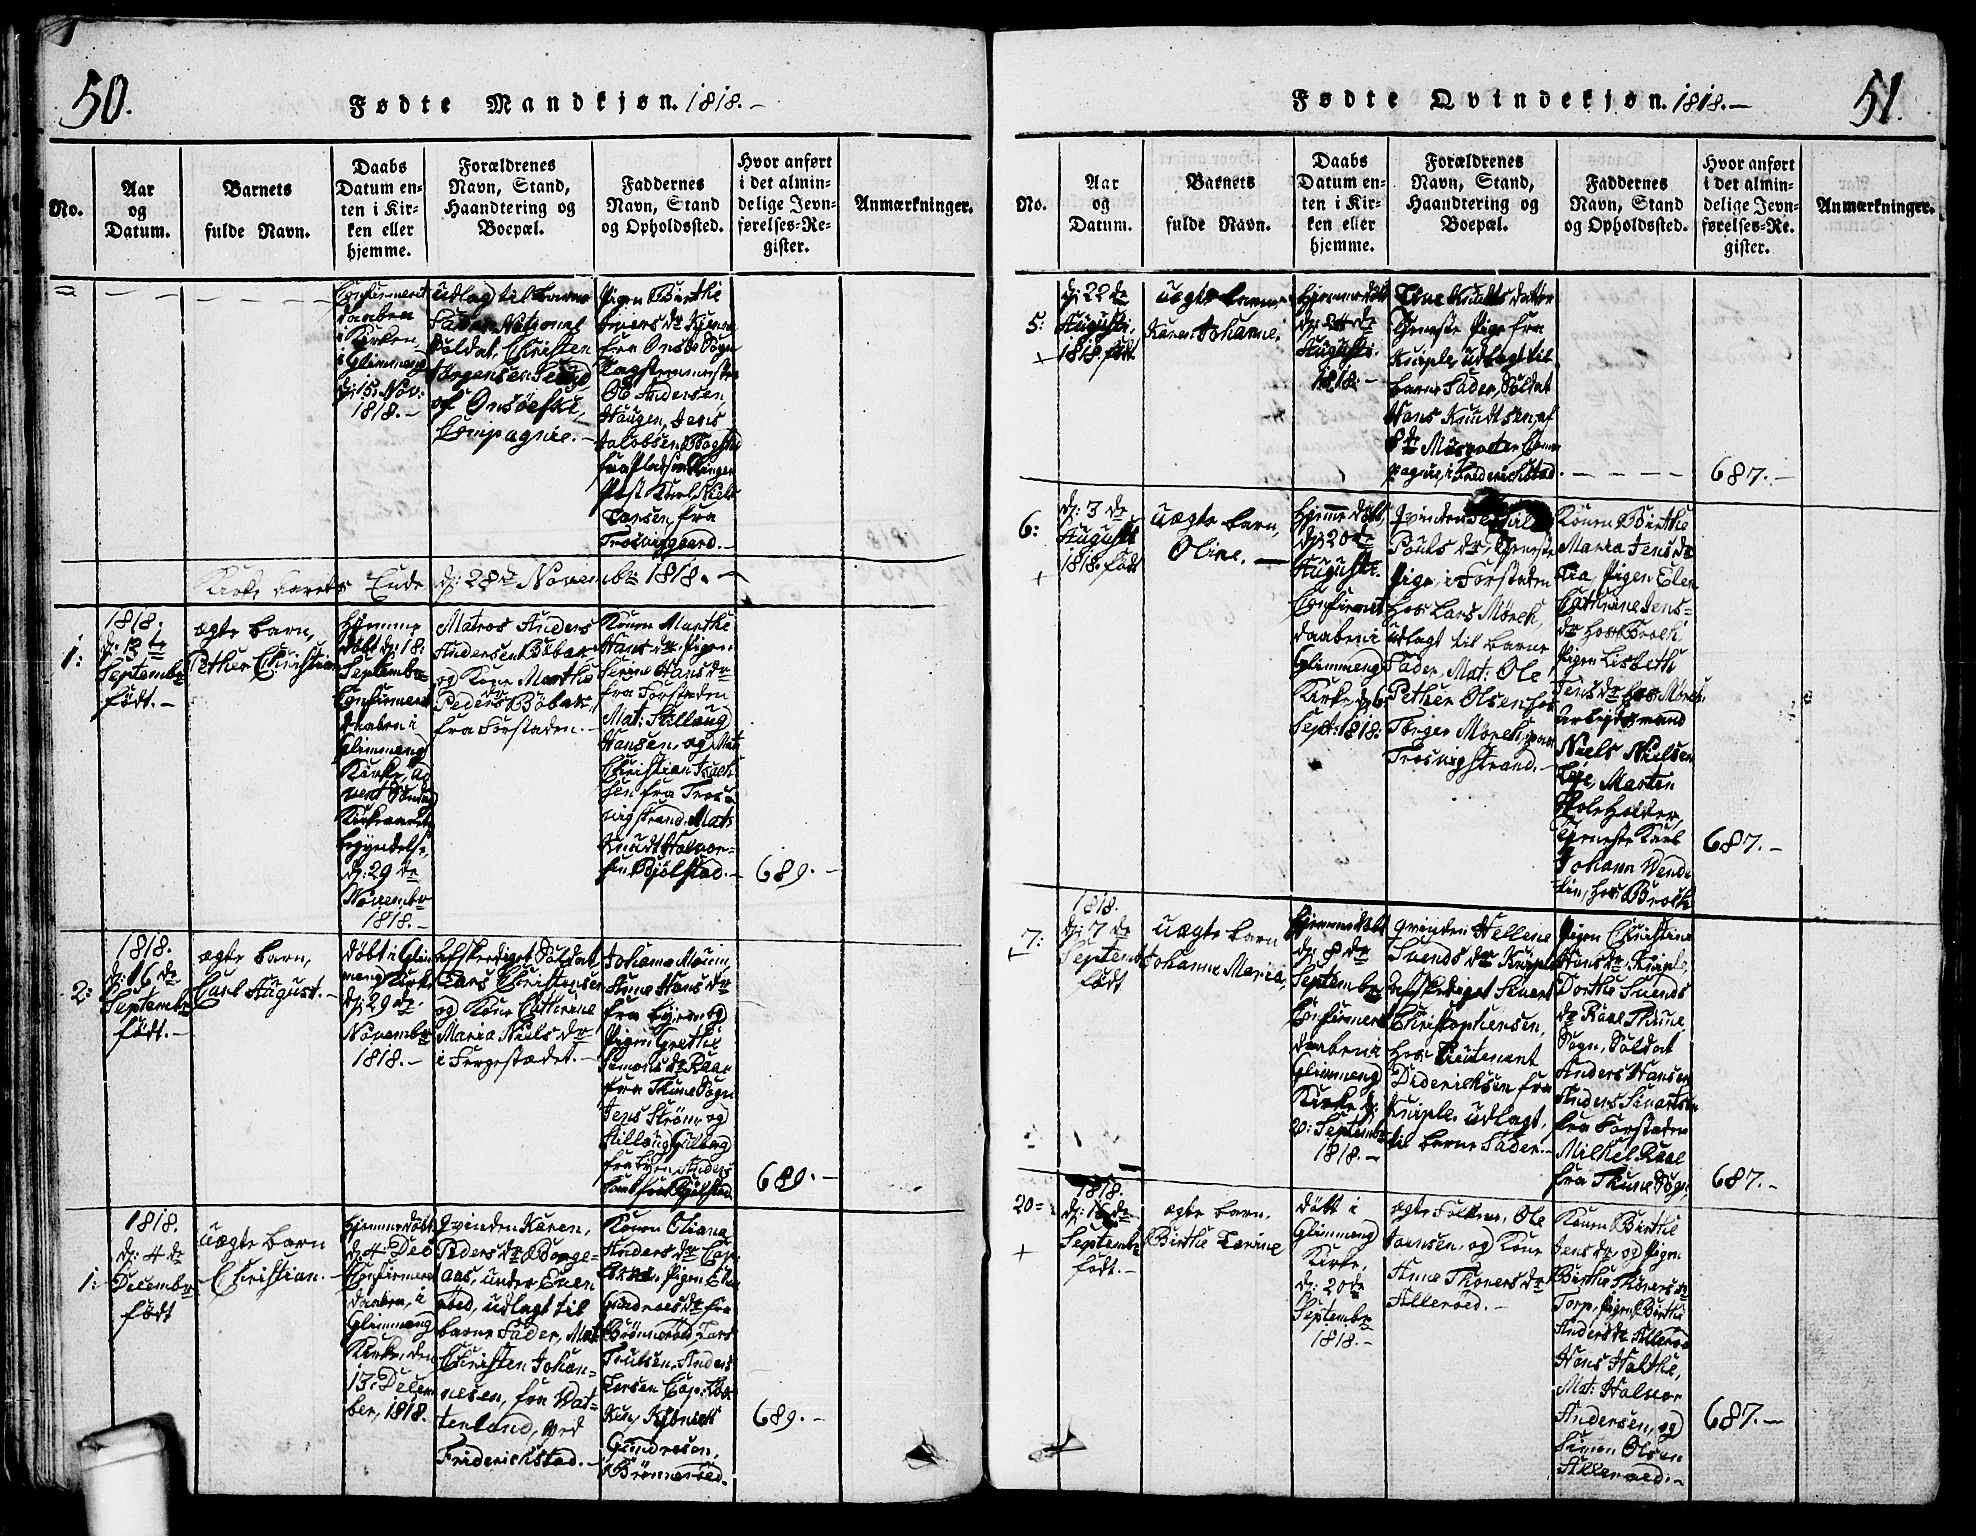 50.
Fødte Mandkjøn. 1818.-
No.
Aar
og
Datum.
Barnets
fulde Navn.
Daabs
Datum en-
ten i Kir-
ken eller
hjemme.
Forældrenes
Navn, Stand,
Haandtering og
Boepæl.
Faddernes
Navn, Stand
og Opholdssted.
Hvor anført
i det almin-
delige Jevn-
førelses-Re-
gister.
Anmærkninger.
Confirmeret
daaben
i Kirken,
i Glemmeng
d: 15 Nov:
1818.-
udlagt til barne
Fader, National
Soldat, Christen
af Onsøeske
Compagnie.-
Pigen Birthe
fra Onsøe Sogn
Ole Andersen
Haugen, Jens
Jacobsen
fra Pladsen
Post Karl, Niels
Larsen, fra
Trosviggaard.-
Kirke aarets Ende d: 28de Novembr 1818.-
1:
1818.
d: 13te
Septembr
født.-
ægte barn,
Pether Christian
Hjemme
døbt d: 18
Septembr
Confirmeret
daaben i
Glemmeng
Kirke, Ad
vent Søndag
Kirkeaarets
begyndelse,
d: 29de
Novembr
1818.-
Matros Anders
Andersen Bøbak
og Kone Marthe
Peders dr Bøbak,
fra Forstaden.-
Konen Marthe
Hans dr, Pigen
Serine Hans dr
fra Forstaden
Mat:
Hansen, og Mat
Christian Isach
sen fra Tros
vigstrand, Mat:
Knudt Halvor-
sen Bjølstad.-
689.-
2:
1818.
d: 16de
Septembr
født.-
ægte barn,
Carl August.-
døbt i Glem
meng Kirke
d: 29de
Novembr
1818.-
afskediget Soldat
Lars Christensen
og Kone Cathrine
Maria Niels dr
i Færgestædet.-
Johanne Moum
Anne Hans dr
fra Byen og
Pigen Grethe
Simons dr Raae
fra Thune Sogn
Jens Strøm og
fra Byen, Anders
fra Bjølstad.
689.-
1:
1818.
d: 4de
Decembr
født
uægte barn
Christian.-
Hjemmedøbt
d: 4: Dec
Confirmeret
daaben, i
Glemmeng
Kirke, den
13: Decem
ber, 1818.
Qvinden Karen,
Peders dr Borge-
aas, under Even
rød, udlagt til
barne Fader, Mat
Christen Johan-
nesen, fra Wat-
terland, ved
Friderichstad.-
Konen Oliana
Anders dr
Pigen Ellen
Gundersdr fra
Brønnerød, Lars
Trulsen, Anders
Larsen
Gundersen,
Brønnerød.-
689.-
51.
Fødte Qvindekjøn. 1818.-
No.
Aar
og
Datum.
Barnets
fulde Navn.
Daabs
Datum en-
ten i Kir-
ken eller
hjemme.
Forældrenes
Navn, Stand,
Haandtering og
Boepæl.
Faddernes
Navn, Stand
og Opholdssted.
Hvor anført
i det almin-
delige Jevn-
førelses-Re-
gister.
Anmærkninger.
5:
+
d: 22de
Augusti,
1818. født
uægte barn
Karen Johanne.
Hjemmedøbt
d: 24de
Augusti.
1818.-
Line Knudts datter
tjeneste Pige fra
Kirple, udlagt til
barne Fader, Soldat
Hans Knudtsen, af
Musqveteer Com
pagnie, i Frederichstad
687.-
6:
+
d: 3de
Augusti
1818. født
uægte barn,
Oline.-
Hjemmedøbt,
d: 20de
Augusti.
Confirmeret
daaben i
Glemmeng
Kirke d: 6
Sept: 1818:
Qvinden
Pouls dr, tjeneste
Pige, i Forstaden
hos Lars Mørch,
udlagt til barne
Fader, Mat: Ole
Pether Olsen, hos
Torger Mørch, paa
Trosvigstrand.-
Konen Birthe
Maria Jens dr
Lia, Pigen Elen
Cathrine Jens-
dr hos Broch
Pigen Lisbeth
Jens dr hos Mørch.
Arbeidsmand
Niels Nielsen
Lie, Morten
Skoleholder,
tjeneste Karl
Johann Wend
lin, hos Broch
687.-
7:
+
1818.
d: 7de
Septembr
født
uægte barn
Johanne Maria,
Hjemmedøbt
d: 8de
Septembr
Confirmeret
daaben i
Glemmeng
Kirke, d:
20: Septembr
1818.-
Qvinden Hellene
Svends dr Kirple
afskediget Sivert
Christophersen,
hos Lieutenant
Diderichsen fra
Kirple, udlagt,
til barne Fader.-
Pigen Christine
Hans dr, Kirple,
Dorthe Svends
dr Raae Thune
Sogn, Soldat
Anders Hansen
Anders Sivertsen
fra Forstaden
Michel Raae
fra Thune Sogn,
687.-
20-
+
1818.
Septembr
født.-
ægte barn,
Birthe Lavine
døbt i
Glemmeng
Kirke,
d: 20de
Septembr
1818.-
ægte Folkene, Ole
Jonsen, og Kone
Anne Thovers dr
Allerød.-
Konen Birthe
Jens dr, og Pigen
Birthe Thovers dr
Torp, Pigen Birthe
Anders dr Allerød
Hans Holthe,
Mat: Halvor
Andersen, og
Simen Olsen
Allerød.-
687.-